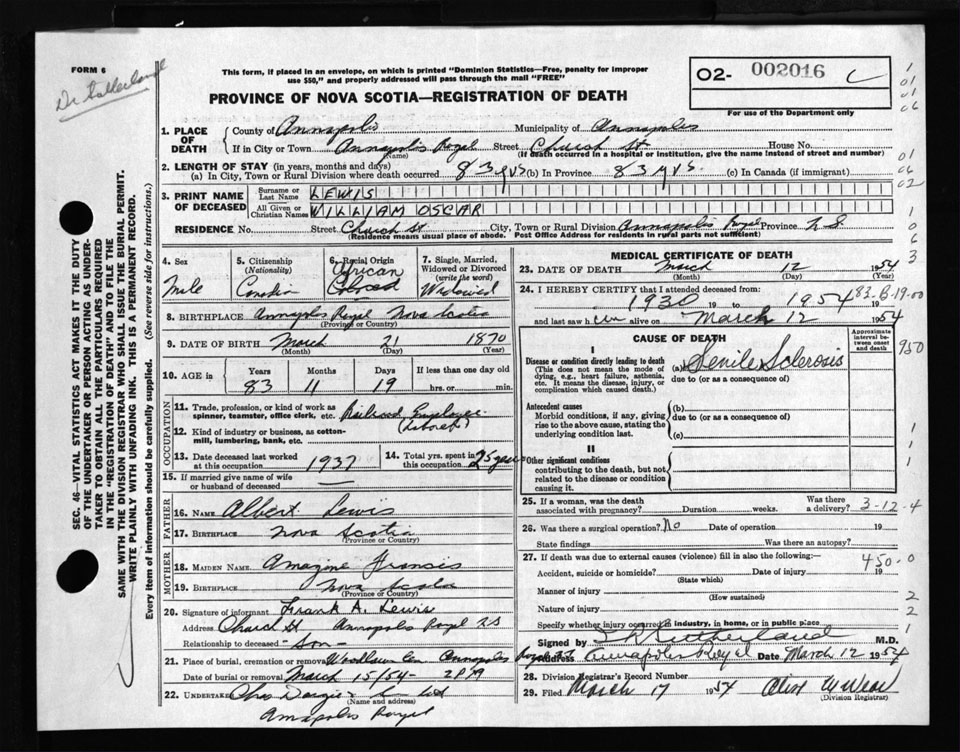 FORM 6
This form, if placed in an envelope, on which is printed "Dominion Statistics—Free, penalty for improper
use $50," and properly addressed will pass through the mail "FREE"
02- 002016 C
For use of the Department only
PROVINCE OF NOVA SCOTIA—REGISTRATION OF DEATH
SEC. 46—VITAL STATISTICS ACT MAKES IT THE DUTY
OF THE UNDERTAKER OR PERSON ACTING AS UNDER-
TAKER TO OBTAIN ALL THE PARTICULARS REQUIRED
IN THE "REGISTRATION OF DEATH" AND TO FILE THE
SAME WITH THE DIVISION REGISTRAR WHO SHALL ISSUE THE BURIAL PERMIT.
WRITE PLAINLY WITH UNFADING INK. THIS IS A PERMANENT RECORD.
Every item of information should be carefully supplied. (See reverse side for instructions.)
1. PLACE OF DEATH County of Annapolis Municipality of Annapolis
If in City or Town Annapolis Royal Street Church St House No.
(Name) (If death occurred in a hospital or institution, give the name instead of street and number)
2. LENGTH OF STAY (in years, months and days)
(a) In City, Town or Rural Division where death occurred 83 yrs (b) In Province 83 yrs. (c) In Canada (if immigrant)
3. PRINT NAME OF DECEASED Surname or Last Name LEWIS
All Given or Christian Names WILLIAM OSCAR
RESIDENCE No. Street Church St City, Town or Rural Division Annapolis Royal Province N S
(Residence means usual place of abode. Post Office Address for residents in rural parts not sufficient)
4. Sex
Male
5. Citizenship
(Nationality)
Canadia
6. Racial Origin
African
Colored
7. Single, Married,
Widowed or Divorced
(write the word)
Widowed
8. BIRTHPLACE Annapolis Royal Nova Scotia
(Province or Country)
9. DATE OF BIRTH March 21 1870
(Month) (Day) (Year)
10. AGE in Years Months Days If less than one day
83 11 19 hrs. or min.
OCCUPATION
11. Trade, profession, or kind of work as
spinner, teamster, office clerk, etc. Railroad Employee
(Laborer)
12. Kind of industry or business, as cotton-
mill, lumbering, bank, etc.
13. Date deceased last worked
at this occupation 1937
14. Total yrs. spent in
this occupation 25 years
15. If married give name of wife
or husband of deceased —
FATHER
16. NAME Albert Lewis
17. BIRTHPLACE Nova Scotia
(Province or Country)
MOTHER
18. MAIDEN NAME Francis
19. BIRTHPLACE Nova Scotia
(Province or Country)
20. Signature of informant Frank A. Lewis
Address Church St Annapolis Royal N S
Relationship to deceased Son
21. Place of burial, cremation or removal Woodlawn Cem Annapolis Royal
Date of burial or removal March 15/54
22. UNDERTAKER Chas
(Name and address)
Annapolis Royal
MEDICAL CERTIFICATE OF DEATH
23. DATE OF DEATH March 12 1954
(Month) (Day) (Year)
24. I HEREBY CERTIFY that I attended deceased from:
1930 19 to 1954 83-B-19-00
and last saw him alive on March 12 1954
CAUSE OF DEATH
Approximate
interval between
onset
and death
I
Disease or condition directly leading to death
(This does not mean the mode of
dying, e.g., heart failure, asthenia,
etc. It means the disease, injury, or
complication which caused death.)
(a) Senile Sclerosis
due to (or as a consequence of)
950
Antecedent causes
Morbid conditions, if any, giving
rise to the above cause, stating the
underlying condition last.
(b)
due to (or as a consequence of)
(c)
II
Other significant conditions
contributing to the death, but not
related to the disease or condition
causing it.
25. If a woman, was the death
associated with pregnancy? Duration weeks. Was there
a delivery? 3-12-4
26. Was there a surgical operation? No Date of operation 19
State findings Was there an autopsy?
27. If death was due to external causes (violence) fill in also the following:—
450-0
Accident, suicide or homicide? Date of injury 19
(State which)
Manner of injury
(How sustained)
Nature of injury
Specify whether injury occurred in industry, in home, or in public place
Signed by Sutherland M.D.
Address Annapolis Royal Date March 12 1954
28. Division Registrar's Record Number
29. Filed March 17 1954
(Division Registrar)